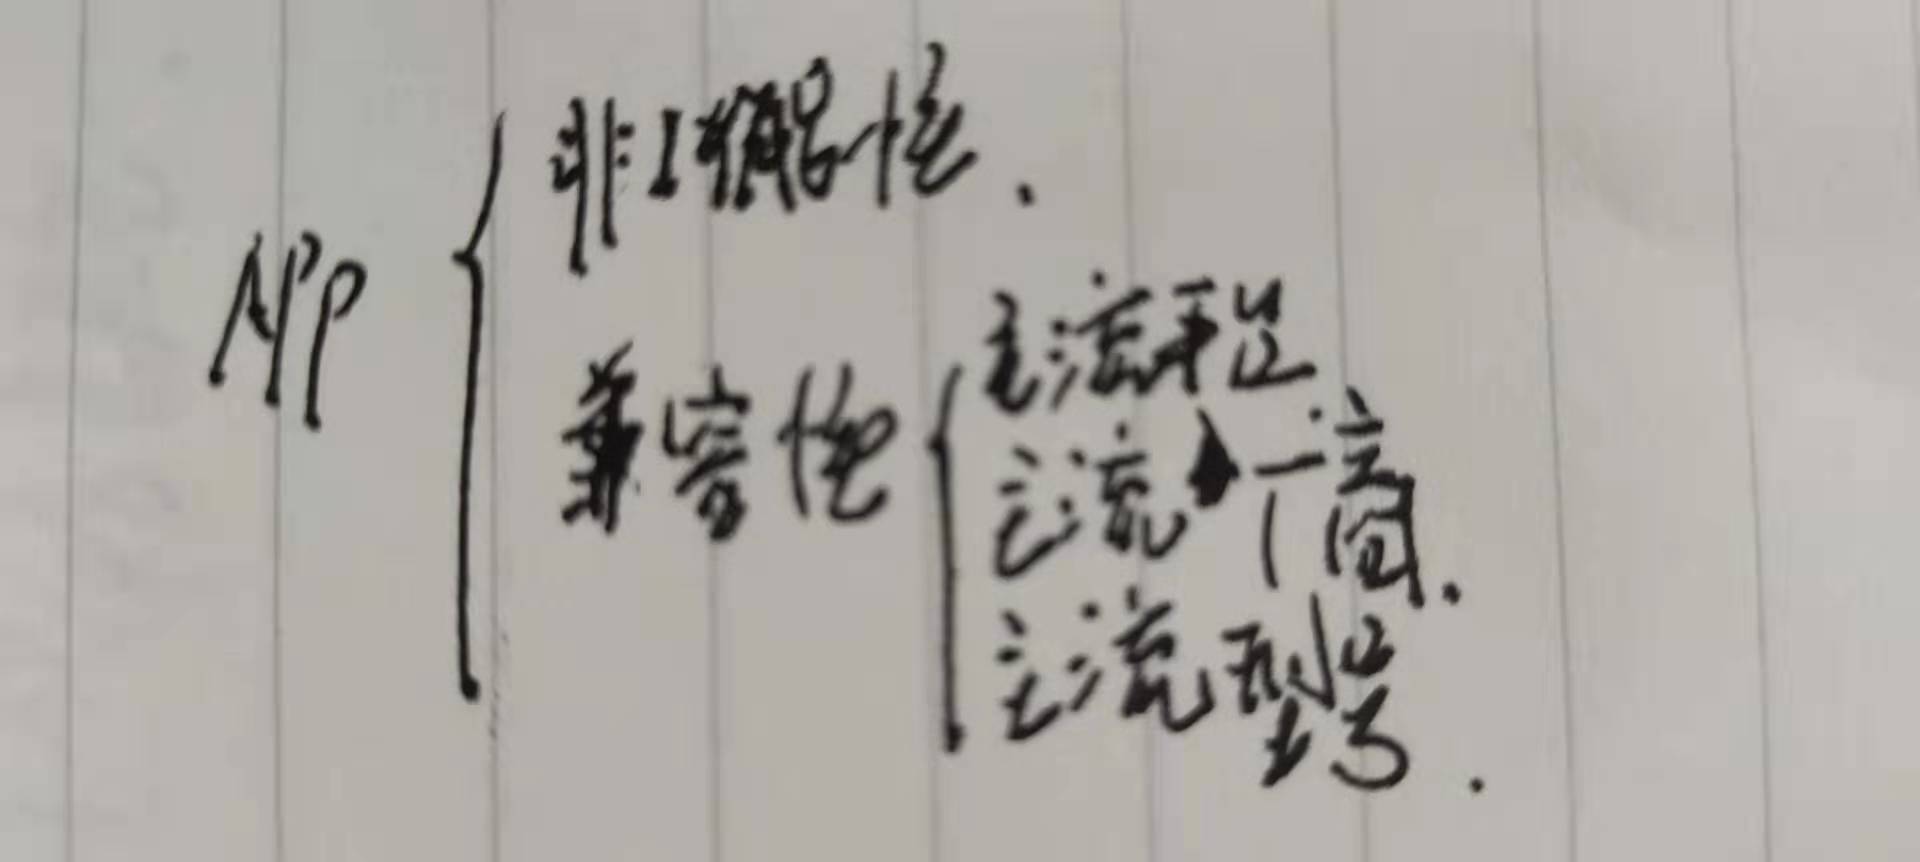 APP
非功能性.
兼容性
主流
主流厂商.
主流型号.